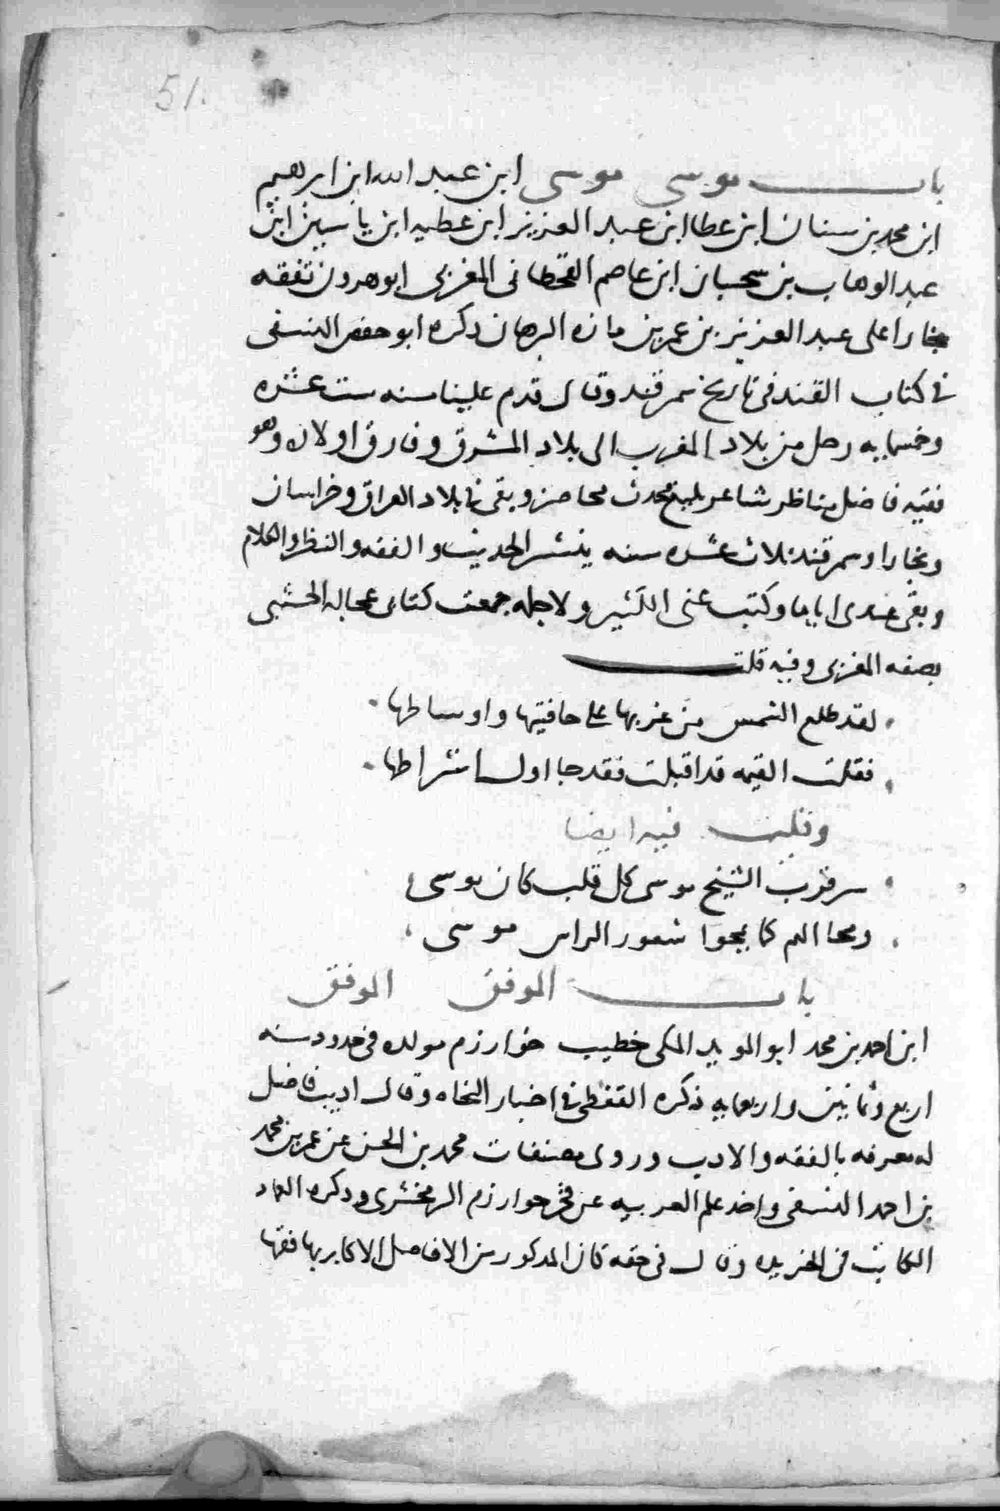 51.
باب موسى موسى ابن عبد الله ابن ابرهيم
ابن محمد بن سنان ابن عطا ابن عبد العزيز ابن عطيه ابن ياسين ابن
عبد الوهاب بن سحبان ابن عاصم القحطانى المغربى ابو هرون تفقه
بخارا على عبد العزيز بن عمر بن مازه البرهان ذكره ابو حفص النسفى
فى كتاب القند فى تاريخ سمرقند وقال قدم علينا سنه ست عشره
وخمسمايه رجل من بلاد المغرب الى بلاد المشرق وفارق اولاده وهو
فقيه فاضل مناظر شاعر بليغ محدث محاضر وبقى فى بلاد العراق وخراسان
وبخارا وسمرقند ثلاث عشره سنه ينشر الحديث والفقه والنظر والكلام
وبقى عندى اياما وكتب عنى الكثير ولاجله جمعت كتاب عجاله الحسبى
بصفه المغربى وفيه قلت
لقد طلع الشمس من غربها على حافتيها واوساطها
فقلت القيمه قد اقبلت فقد جا اول اشراطها
وقلت فيه ايضا
سر قرب الشيخ موسى كل قلب كان يوسى
ومحا الهم كما يمحوا شعور الراس موسى
باب الموفق الموفق
ابن احمد بن محمد ابو المويد المكى خطيب خوارزم مولده فى حدود سنه
اربع وثمانين واربعمايه ذكره القفطى فى اخبار النحاه وقال اديب فاضل
له معرفه بالفقه والادب وروى مصنفات محمد بن الحسن عن عمر بن محمد
بن احمد النسفى واخذ علم العربيه عن فخر خوارزم الزمخشرى وذكره العماد
الكاتب فى الخريده وقال فى حقه كان المذكور من الافاضل الاكابر بها فقها